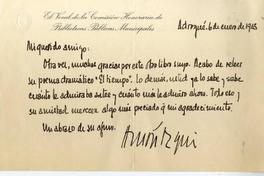 El Vocal de la Comisión Honoraria de
Bibliotecas Públicas Municipales
Adrogué, 6 de enero de 1915
Mi querido amigo:
Otra vez, muchas gracias por este otro libro suyo. Acabo de releer
su poema dramático "El tiempo". Lo demás, usted ya lo sabe y sabe
cuánto le admiraba antes y cuánto más le admiro ahora. Todo eso y
su amistad merecen algo más preciado q' mi agradecimiento.
Un abrazo de su afmo.